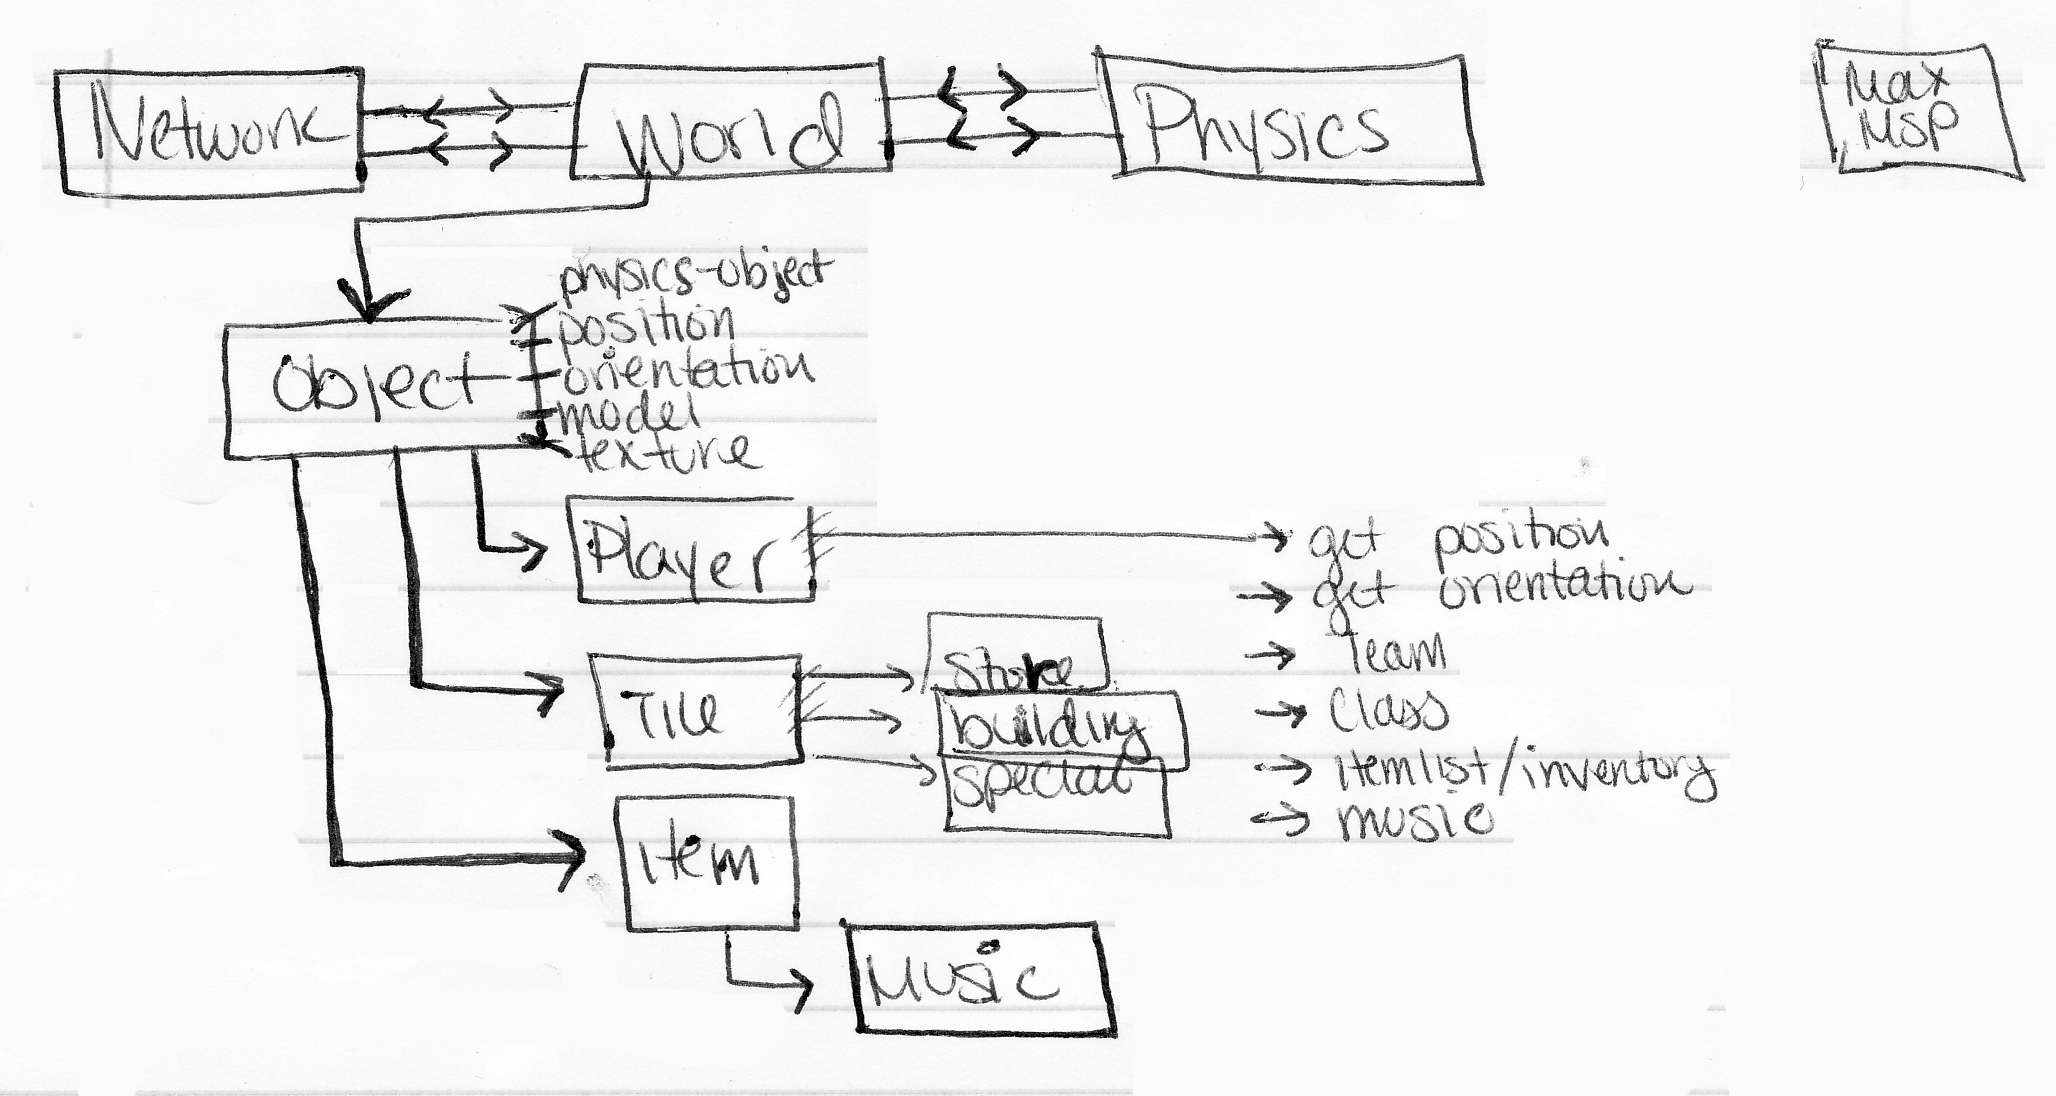 Network
World
Physics
Max
MSP
physics-object
position
orientation
model
texture
Object
Player
get position
get orientation
Team
Class
itemlist/inventory
music
Tile
store
building
special
item
Music